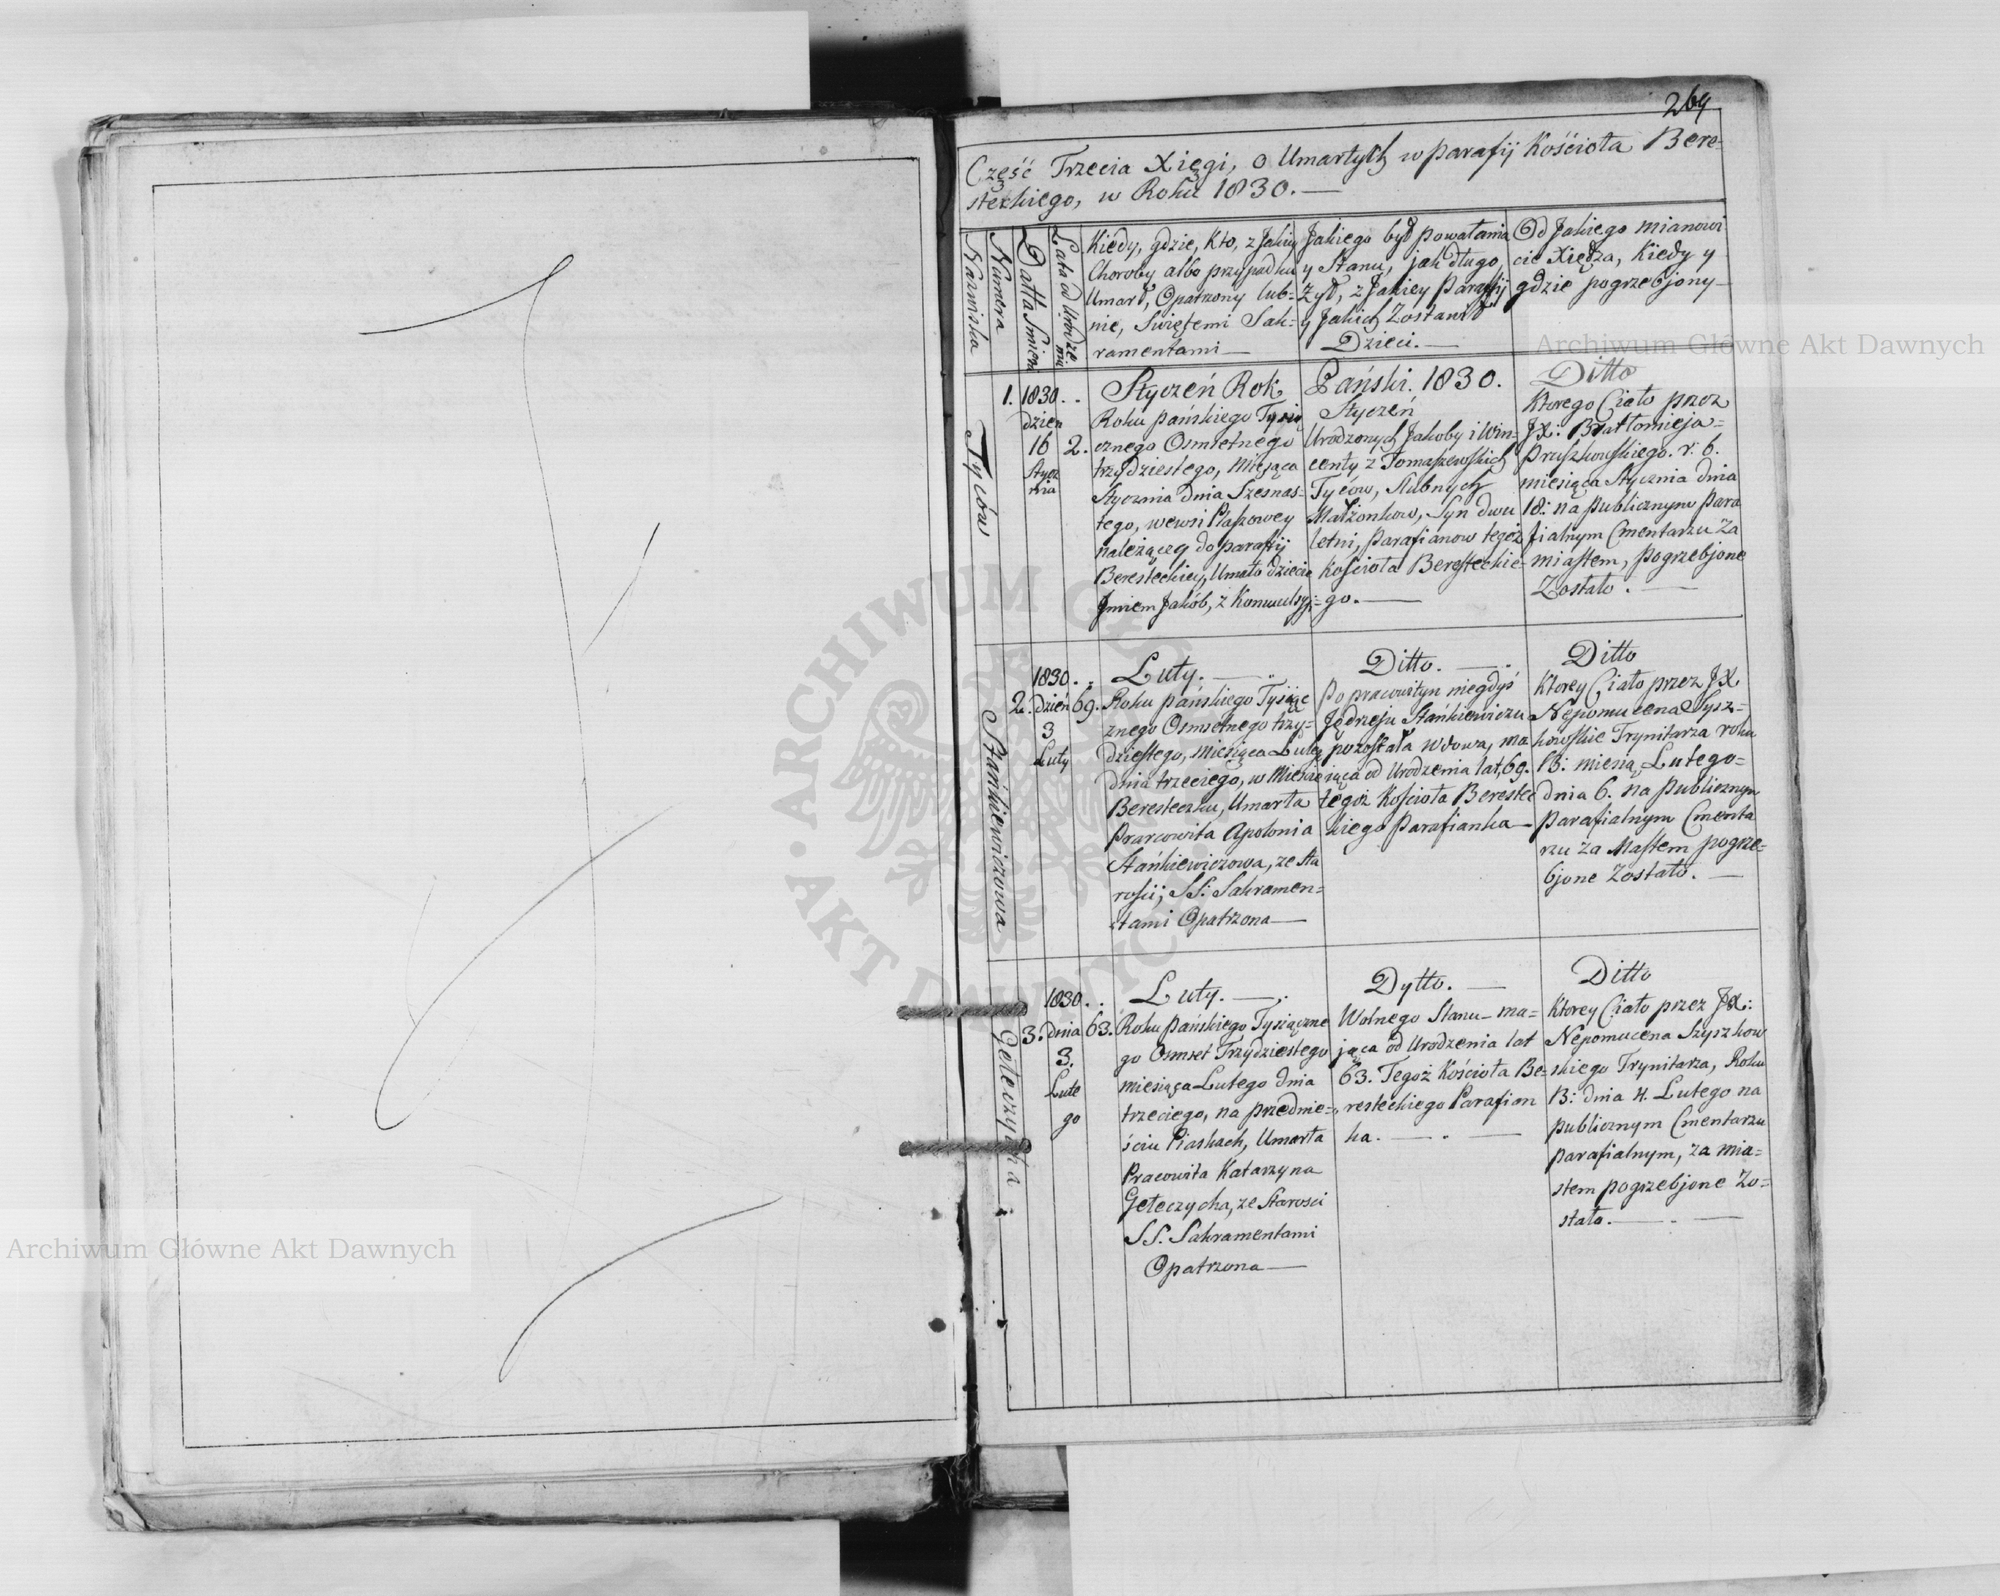 264
Część Trzecia Xięgi, o Umartych w parafij Kościoła Bere-
steckiego, w Roku 1830. —
Nazwiska
Numera
Datta Smierci
Lata od Urodze
nia
Kiedy, gdzie, Kto, z Jakiey
Choroby albo przypadku
Umarł, Opatrzony lub-
nie, Swiętemi Sak-
ramentami —
Jakiego był powołania
y Stanu, jak długo
Żył, z Jakiey Parafij
y Jakich Zostawił
Dzieci. —
Od Jakiego mianowi
cie Xiędza, Kiedy y
gdzie pogrzebjony —
Tyców
1.
1830..
dzien
16
Stycz
nia
2.
Styczeń Rok
Roku pańskiego Tysią
cznego Osmsetnego
trzydziestego, Miesiąca
Stycznia dnia Szesnas-
tego, wewsi Plaszowey
należącey do parafij
Beresteckiey, Umało dziecie
Jmiem Jakób, z Konwulsyi
Pański. 1830.
Styczeń
Urodzonych Jakoby i Win-
centy z Tomaszewskich
Tyców, slubnych
Małżonkow, Syn dwu
letni, parafianow tegoż
Kościoła Beresteckie-
go. —
Ditto
Ktorego Ciało przez
JX: Brattomieja=
Pruszkowskiego. r: b.
miesiąca Stycznia dnia
18: na publicznym para
fialnym Cmentarzu Za
miastem, pogrzebjone
Zostało. —
Stańkiewiczowa
2.
1830..
dzień
3
Luty
69.
Luty. —
Roku pańskiego Tysiące
znego Osmsetnego trzy-
dziestego, miesiąca Luteg
dnia trzeciego, w Miescie
Beresteczku, Umarła
Pracowita Apolonia
Stańkiewiczowa, ze Sta
rosii, SS: Sakramen=
tami Opatrzona —
Ditto. —
Po pracowitym niegdyś
Jędrzeju Stańkiewiczu
pozostała wdowa, ma
iąca od Urodzenia lat, 69.
tegoż Kościoła Berestec
kiego Parafianka —
Ditto
Ktorey Ciało przez JX
Nepomucena Szysz-
kowskie Trynitarza roku
B: miesią. Lutego=
dnia 6. na publicznym
parafialnym Cmenta
rzu za Mastem pogrze-
bjone Zostało. —
Geteczycha
3.
1830..
dnia
3.
Lute
go
63.
Luty. —
Roku Pańskiego Tysiączne
go Osmset Trzydziestego
miesiąca Lutego dnia
trzeciego, na przedmie-
ściu Piaskach, Umarła
Pracowita Katarzyna
Geteczycha, ze Starosci
SS. Sakramentami
Opatrzona —
Dytto. —
Wolnego Stanu — ma=
jąca od Urodzenia lat
63. Tegoż Kościoła Be-
resteckiego Parafian
ka. —
Ditto
Ktorey Ciało przez JX:
Nepomucena Szyszkow
skiego Trynitarza, Roku
B: dnia 4. Lutego na
publicznym Cmentarzu
parafialnym, za mia=
stem pogrzebjone Zo=
stało. —
Archiwum Główne Akt Dawnych
Archiwum Główne Akt Dawnych
ARCHIWUM GŁÓWNE
AKT DAWNYCH